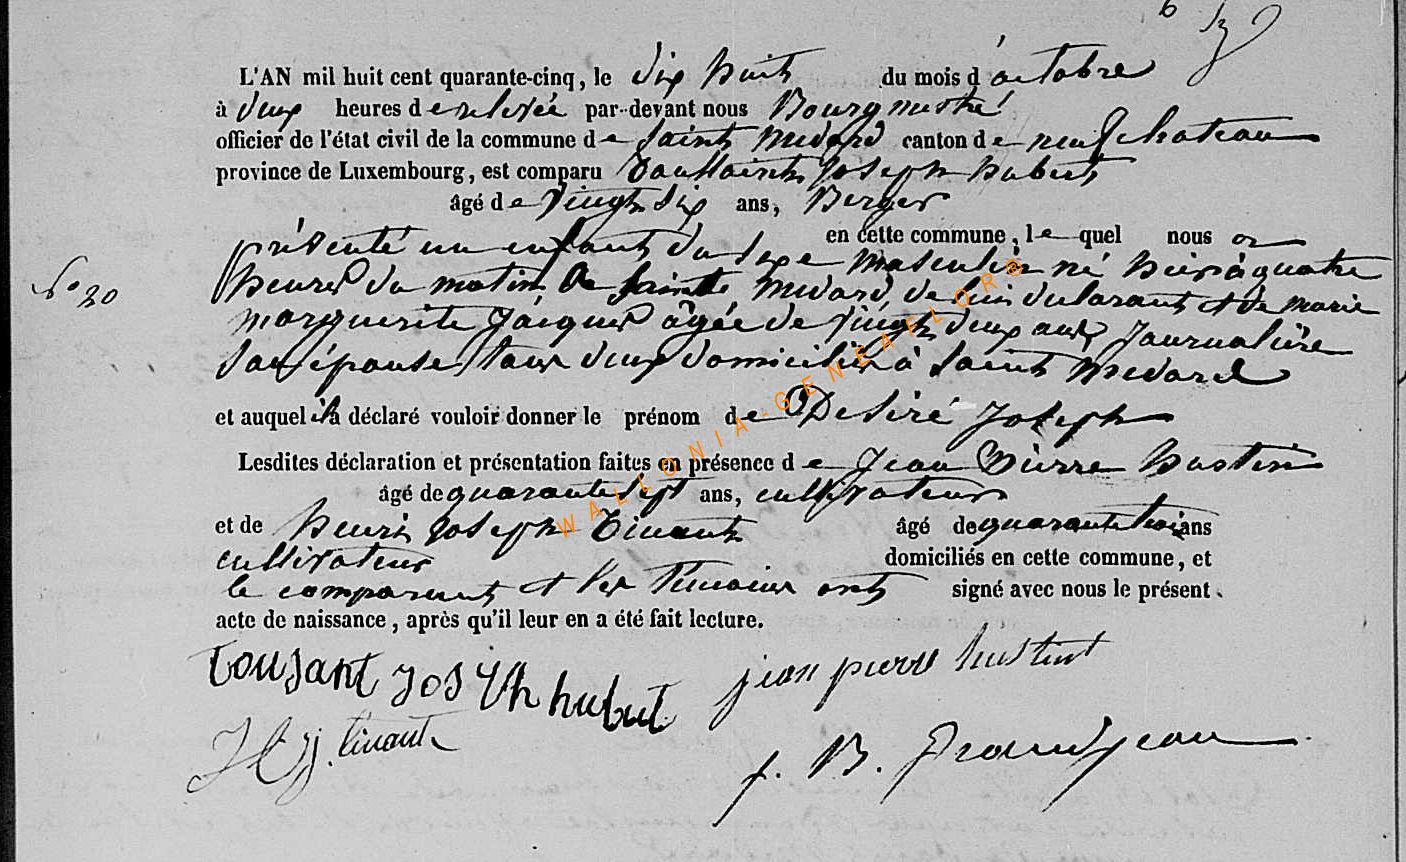 6
L'AN mil huit cent quarante-cinq, le dix huit du mois d'octobre
à deux heures de relevée par-devant nous Bourgmestre
officier de l'état civil de la commune de Saint Médard canton de neufchateau
province de Luxembourg, est comparu Toussaint Joseph hubert
âgé de vingt six ans, Berger
en cette commune, le quel nous a
présenté un enfant du sexe masculin né hier à quatre
N° 20
heures du matin à Saint Médard, de lui déclarant et de marie
marguerite Jacques âgée de vingt deux ans, Journalière
son épouse, tous deux domiciliés à Saint Médard
et auquel il a déclaré vouloir donner le prénom de Désiré Joseph
Lesdites déclaration et présentation faites en présence de Jean Pierre hustin
âgé de quarante sept ans, cultivateur
et de henri Joseph Tinant âgé de quarante trois ans
cultivateur domiciliés en cette commune, et
le comparant et les témoins ont signé avec nous le présent
acte de naissance, après qu'il leur en a été fait lecture.
tousant joseph hubert jean pierre hustint
H. j. tinant J. B. Grandjean
WALLONIA-GENEAFLOR@